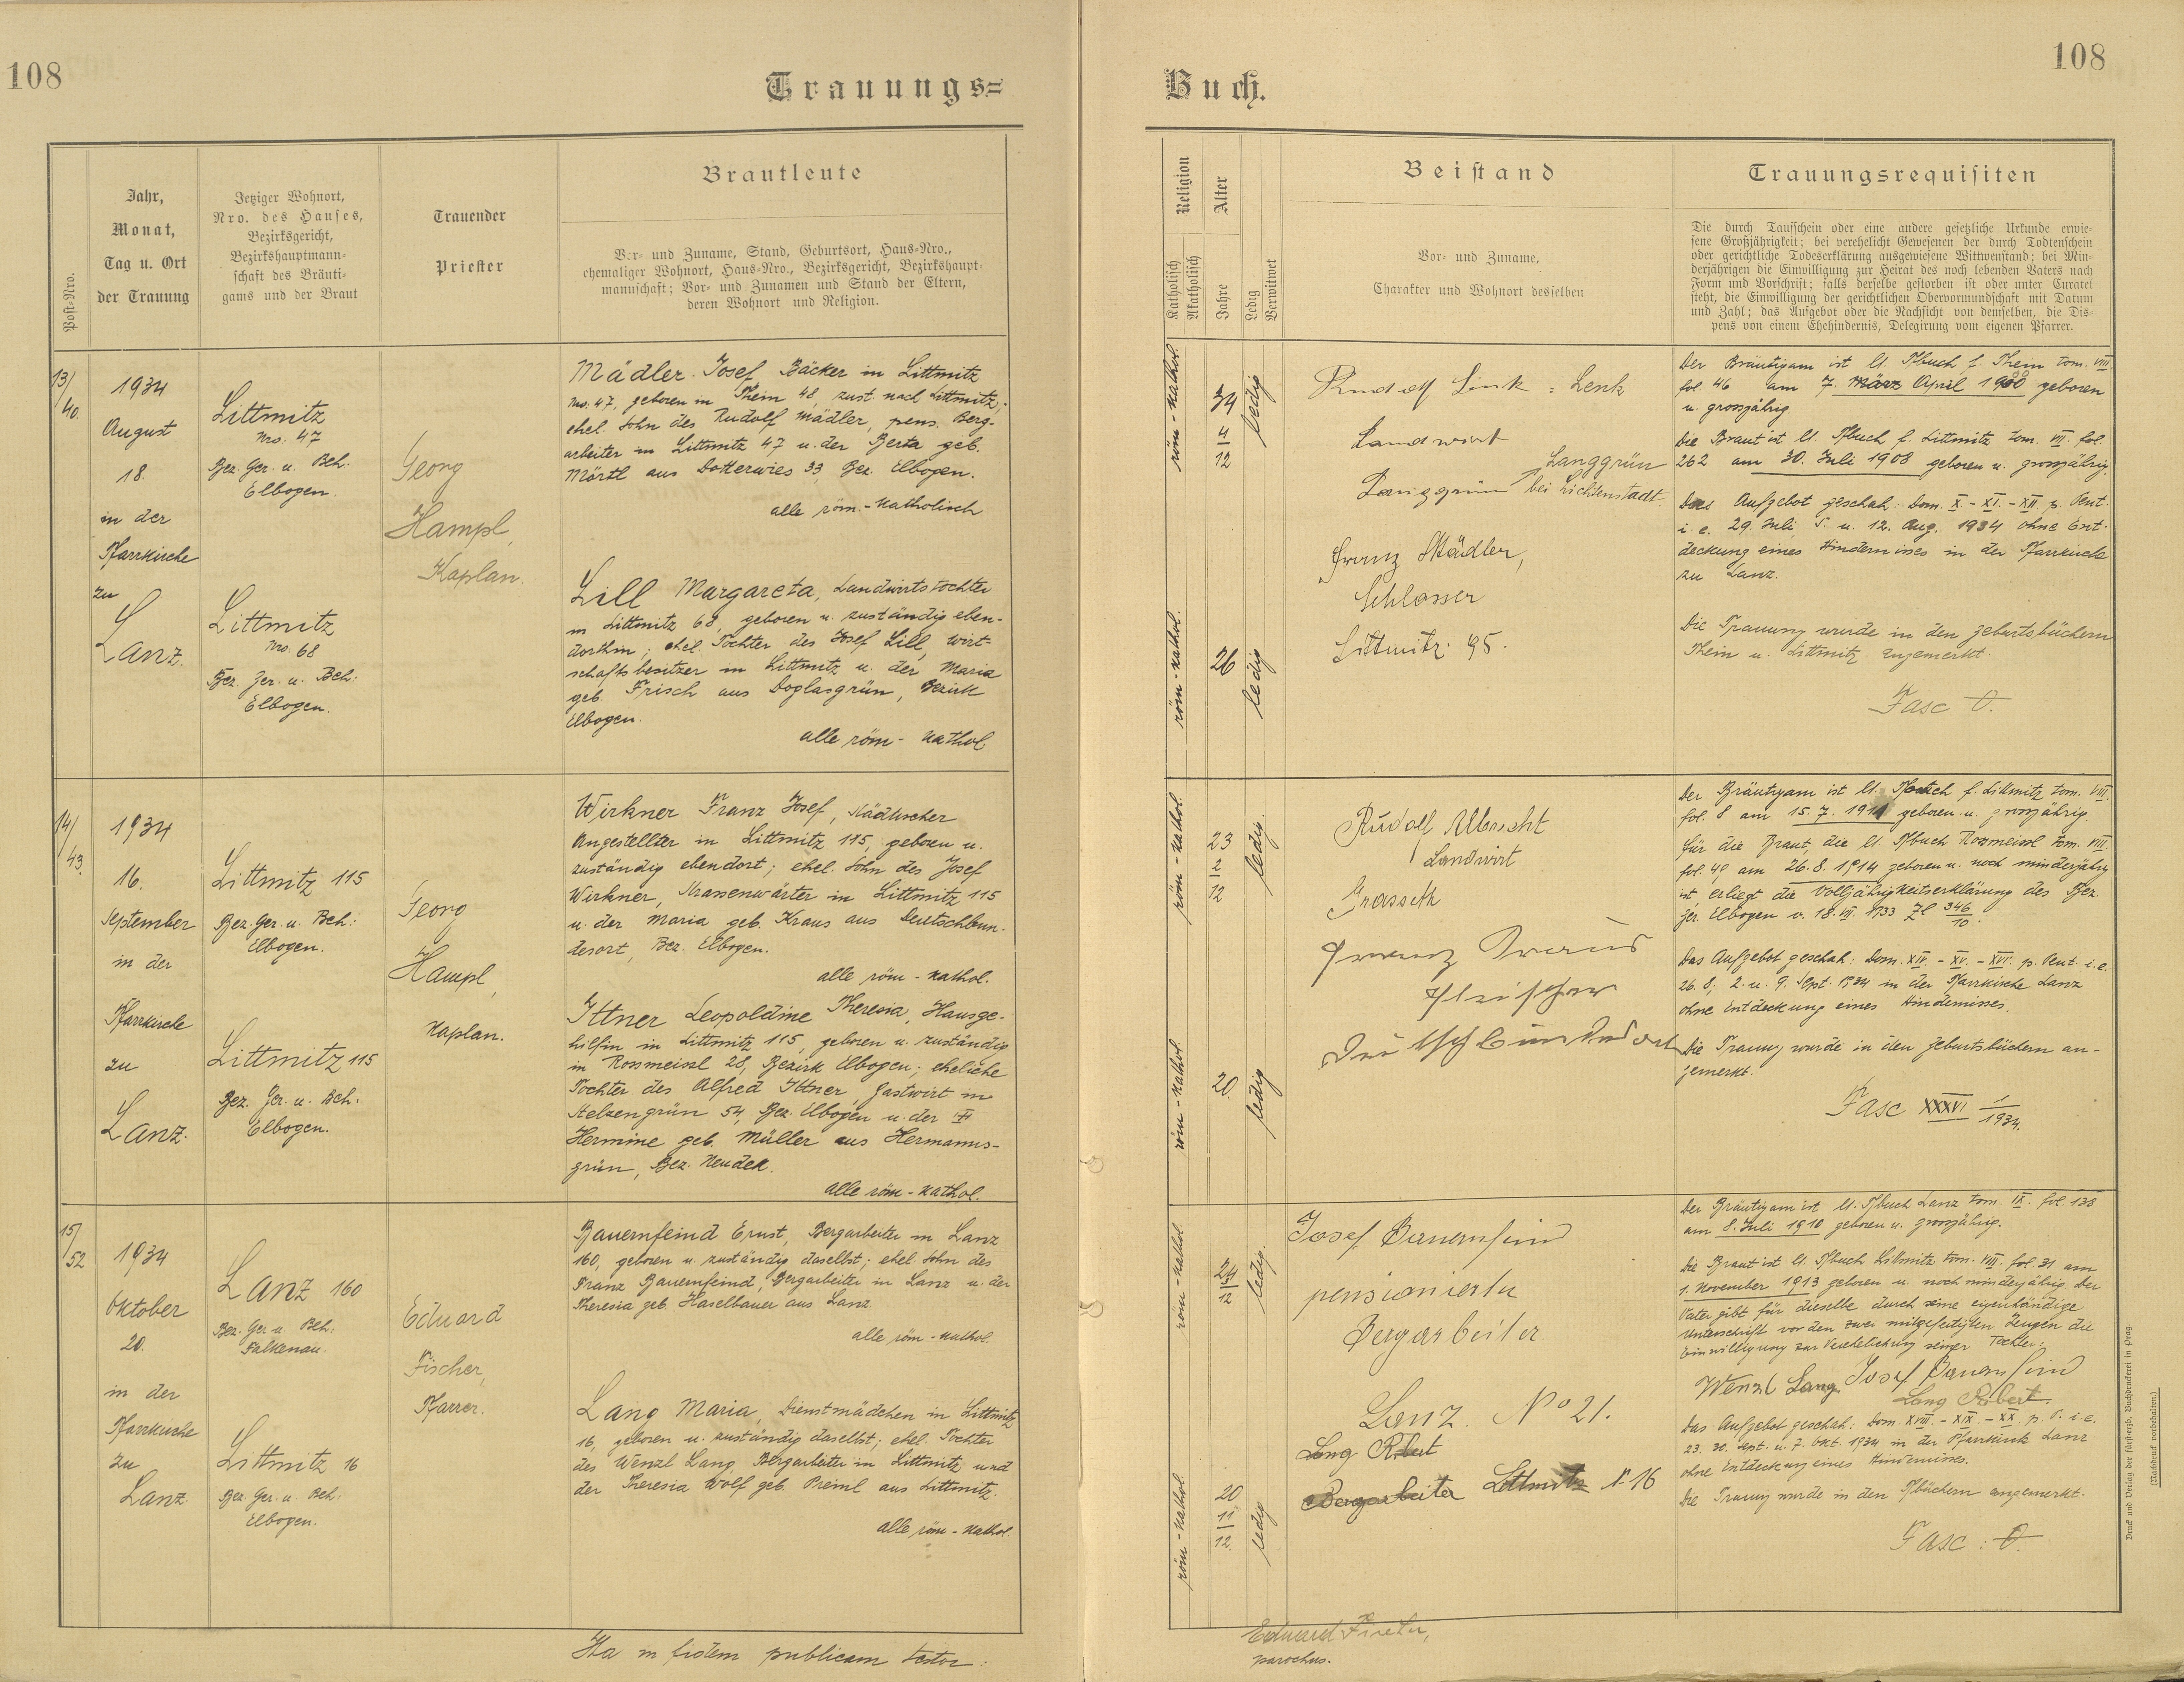 108
Trauungs=
Jahr,
Monat,
Tag u. Ort
der Trauung
Post-Nro.
Jetziger Wohnort,
Nro. des Hauses,
Bezirksgericht,
Bezirkshauptmann-
schaft des Bräuti-
gams und der Braut
Trauender
Priester
Brautleute
Vor- und Zuname, Stand, Geburtsort, Haus-Nro.,
ehemaliger Wohnort, Haus-Nro., Bezirksgericht, Bezirkshaupt-
mannschaft; Vor- und Zunamen und Stand der Eltern,
deren Wohnort und Religion.
13/
40.
1934
August
18.
in der
Pfarrkirche
zu
Lanz.
Littmitz
Nro. 47
Bez. Ger. u. Beh.
Elbogen.
Littmitz
Nro. 68
Bez. Ger. u. Beh:
Elbogen.
Georg
Hampl,
Kaplan.
Mädler Josef Bäcker in Littmitz
Nro. 47, geboren in Thein 48, zust. nach Littmitz;
ehel. Sohn des Rudolf Mädler, pens. Berg-
arbeiter in Littmitz 47 u. der Berta geb.
Mörtl aus Dotterwies 33, Bez. Elbogen.
alle röm.-katholisch
Lill Margareta, Landwirtstochter
in Littmitz 68, geboren u. zuständig eben-
dorthin; ehel. Tochter des Josef Lill, Wirt-
schaftsbesitzer in Littmitz u. der Maria
geb. Frisch aus Doglasgrün, Bezirk
Elbogen.
alle röm- kathol.
14/
43.
1934
16.
September
in der
Pfarrkirche
zu
Lanz.
Littmitz 115
Bez. Ger. u. Beh:
Elbogen.
Littmitz 115
Bez. Ger. u. Beh.
Elbogen.
Georg
Hampl,
Kaplan.
Wirkner Franz Josef, städtischer
Angestellter in Littmitz 115, geboren u.
zuständig ebendort; ehel. Sohn des Josef
Wirkner, Strassenwärter in Littmitz 115
u. der Maria geb. Kraus aus Deutschbun-
desort, Bez. Elbogen.
alle röm - kathol.
Ittner Leopoldine Theresia, Hausge-
hilfin in Littmitz 115, geboren u. zuständig
in Rossmeissl 28, Bezirk Elbogen; eheliche
Tochter des Alfred Ittner, Gastwirt in
Stelzengrün 54, Bez. Elbogen u. der
Hermine geb. Müller aus Hermanns-
grün, Bez. Neudek.
alle röm - kathol.
15/
52
1934
Oktober
20.
in der
Pfarrkirche
zu
Lanz.
Lanz 160
Bez. Ger. u. Beh:
Falkenau.
Littmitz 16
Bez. Ger. u. Beh:
Elbogen.
Eduard
Fischer,
Pfarrer.
Bauernfeind Ernst, Bergarbeiter in Lanz
160, geboren u. zuständig daselbst; ehel. Sohn des
Franz Bauernfeind, Bergarbeiter in Lanz u. der
Theresia geb. Haselbauer aus Lanz.
alle röm - kathol.
Lang Maria, Dienstmädchen in Littmitz
16, geboren u. zuständig daselbst; ehel. Tochter
des Wenzl Lang Bergarbeiter in Littmitz und
der Theresia Wolf geb. Preinl aus Littmitz.
alle röm - kathol.
Ita in fidem publicam testor:
108
Buch.
Religion
Katholisch
Akatholisch
Alter
Jahre
Ledig
Verwitwet
Beistand
Vor- und Zuname,
Charakter und Wohnort desselben
Trauungsrequisiten
Die durch Taufschein oder eine andere gesetzliche Urkunde erwie-
sene Großjährigkeit; bei verehelicht Gewesenen der durch Todtenschein
oder gerichtliche Todeserklärung ausgewiesene Wittwenstand; bei Min-
derjährigen die Einwilligung zur Heirat des noch lebenden Vaters nach
Form und Vorschrift; falls derselbe gestorben ist oder unter Curatel
steht, die Einwilligung der gerichtlichen Obervormundschaft mit Datum
und Zahl; das Aufgebot oder die Nachsicht von demselben, die Dis-
pens von einem Ehehindernis, Delegirung vom eigenen Pfarrer.
röm - kathol.
34
4
12
ledig
röm - kathol.
26
ledig
Rudolf Link = Lenk
Landwirt
Langgrün
Langgrün bei Lichtenstadt.
Franz Mädler,
Schlosser
Littmitz 95.
Der Bräutigam ist lt. Pfbuch f. Thein tom. VIII
fol. 46 am 7. März April 1900 geboren
u. grossjährig.
Die Braut ist lt. Pfbuch f. Littmitz tom. VII. fol.
262 am 30. Juli 1908 geboren u. grossjährig.
Das Aufgebot geschah: Dom. X - XI. - XII. p. Pent.
i. e. 29. Juli, 5. u. 12. Aug. 1934 ohne Ent-
deckung eines Hindernisses in der Pfarrkirche
zu Lanz.
Die Trauung wurde in den Geburtsbüchern
Thein u. Littmitz angemerkt.
Fasc O.
röm - kathol.
23
2
12
ledig.
röm - kathol.
20
ledig
Rudolf Albrecht
Landwirt
Grasseth
Franz Kraus
Fleischer
Deutschbundesort
Der Bräutigam ist lt. Pfbuch f. Littmitz tom. VIII.
fol. 8 am 15. 7. 1911 geboren u. grossjährig.
Für die Braut, die lt. Pfbuch Rossmeissl tom. VIII.
fol. 49 am 26. 8. 1914 geboren u. noch minderjährig
ist, erliegt die Volljährigkeitserklärung des Bez.
Ger. Elbogen v. 18. VII. 1933 Zl 346/10.
Das Aufgebot geschah: Dom. XIV. - XV. - XVI. p. Pent. i. e.
26. 8; 2. u. 9. Sept. 1934 in der Pfarrkirche Lanz
ohne Entdeckung eines Hindernisses.
Die Trauung wurde in den Geburtsbüchern an-
gemerkt.
Fasc XXXVI 1/1934.
röm - kathol.
24
12
ledig.
röm - kathol.
20
11
12.
ledig
Josef Bauernfeind
pensionierter
Bergarbeiter.
Lanz. No 21.
Lang Robert
Bergarbeiter Littmitz N 16
Der Bräutigam ist lt. Pfbuch Lanz tom. IX. fol. 138
am 8. Juli 1910 geboren u. grossjährig.
Die Braut ist lt. Pfbuch Littmitz tom. VIII. fol. 31 am
1. November 1913 geboren u. noch minderjährig. Der
Vater gibt für dieselbe durch seine eigenhändige
Unterschrift vor den zwei mitgefertigten Zeugen die
Einwilligung zur Verehelichung seiner Tochter:
Wenzl Lang. Josef Bauernfeind
Lang Robert.
Das Aufgebot geschah: Dom. XVIII. - XIX. - XX. p. P. i. e.
23. 30. Sept. u. 7. Okt. 1934 in der Pfarrkirche Lanz
ohne Entdeckung eines Hindernisses.
Die Trauung wurde in den Pfbüchern angemerkt.
Fasc : O.
Eduard Fischer,
parochus.
Druck und Verlag der fürsterzb. Buchdruckerei in Prag.
(Nachdruck vorbehalten.)